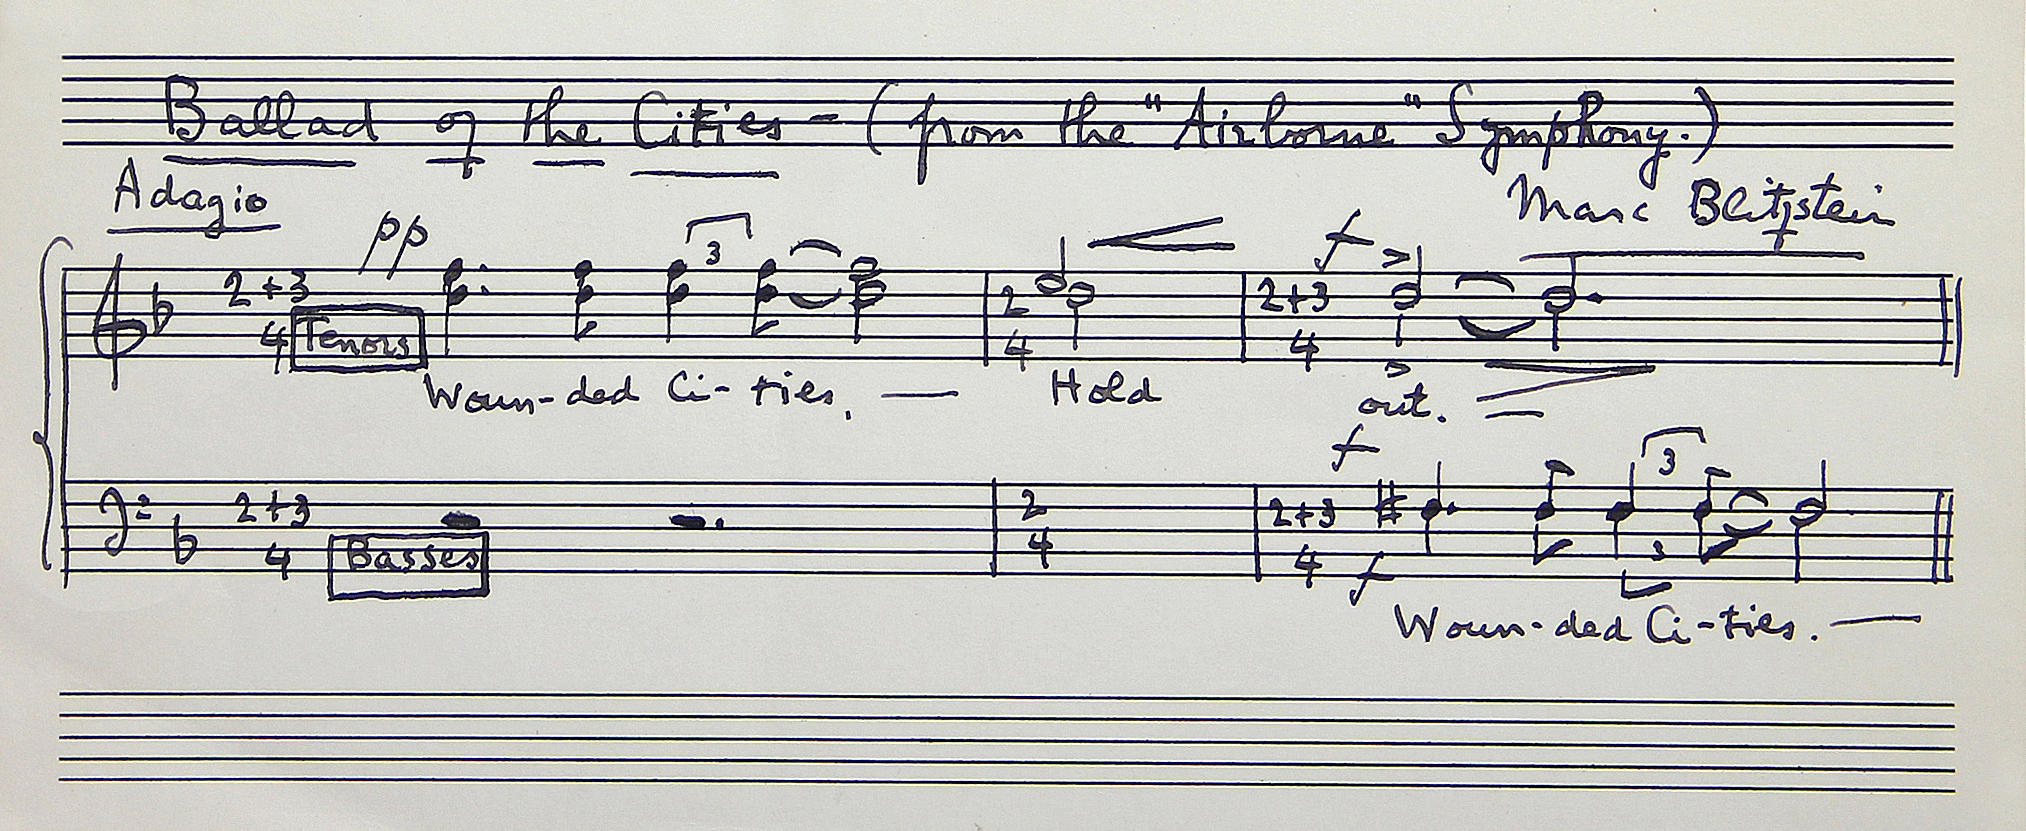 Ballad of the Cities - (from the "Airborne" Symphony.)
Adagio
Marc Blitzstein
pp 3 f
2+3 4 2 4 2+3 4
Tenors
Woun-ded Ci-ties. — Hold out. —
f 3
2+3 4 2 4 2+3 4
Basses
f 3
Woun-ded Ci-ties. —